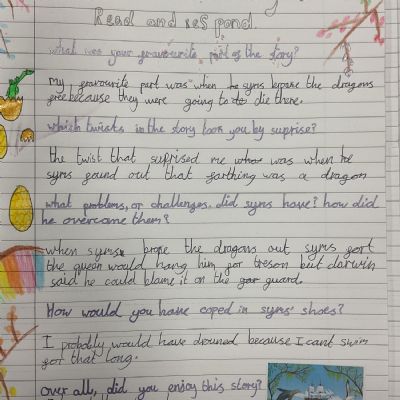 Read and respond.
what was your gravourite part of the story?
My gravourite part was when he syms broke the dragons
gree because they were going to do die there.
which twists in the story took you by suprise?
the twist that suprised me when was when he
syms gound out that garthing was a dragon
what problems, or challenges, did syms have? how did
he overcome them?
when syms broke the dragons out syms gort
the queen would hang him gor treson but darwin
said he could blame it on the gar guard.
How would you have coped in syms' shoes?
I probably would have drowned because I cant swim
gor that long.
over all, did you enjoy this story?